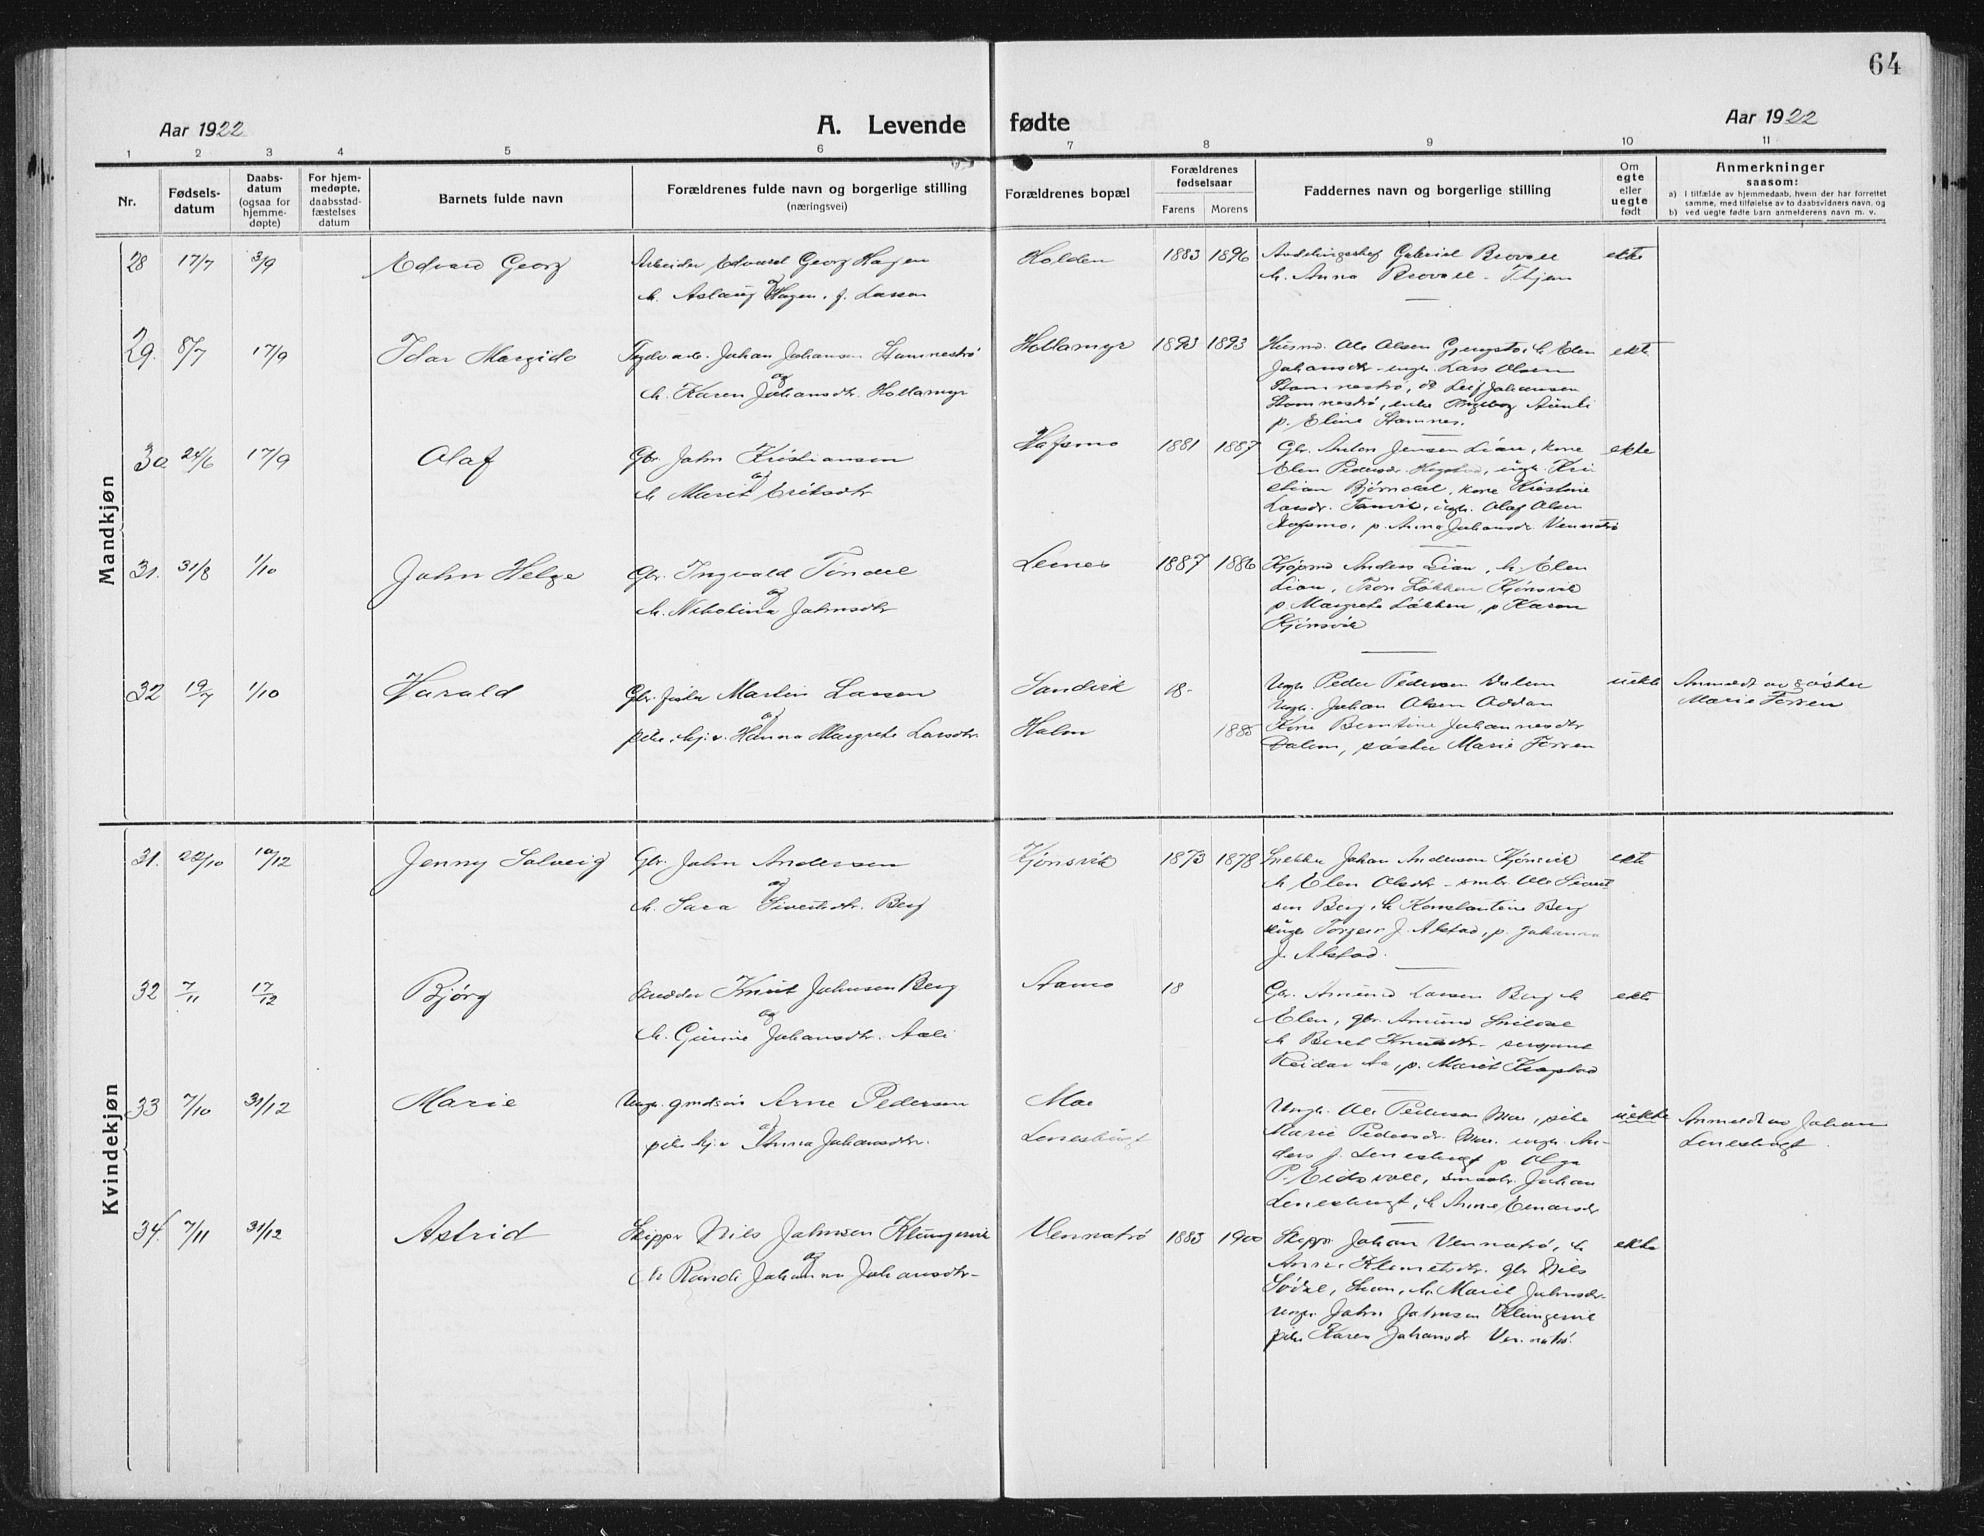 64
Aar 1922
A. Levende fødte
Aar 1922
1 2 3 4 5 6 7 8 9 10 11
Nr.
Fødsels-
datum
Daabs-
datum
(ogsaa for
hjemme-
døpte)
For hjem-
medøpte,
daabsstad-
fæstelses
datum
Barnets fulde navn
Forældrenes fulde navn og borgerlige stilling
(næringsvei)
Forældrenes bopæl
Forældrenes
fødselsaar
Farens Morens
Faddernes navn og borgerlige stilling
Om
egte
eller
uegte
født
Anmerkninger
saasom:
a) I tilfælde av hjemmedaab, hvem der har forrettet
samme, med tilføielse av to daabsvidners navn, og
b) ved uegte fødte barn anmelderens navn m. v.
Mandkjøn
28 17/7 3/9 Edvard Georg
Arbeider Edvard Georg Hagen
og
h. Aslaug Hagen, f. Larsen
Holden 1883 1896
Avdelingschef Gabriel Brovold
h. Anna Brovold
ekte
29. 8/7 17/9 Idar Margido
Johan Johansen Stamnestrø
og
h. Karen Johansdtr. Hollamyr
Hollamyr 1893 1893
Husmd. Ole Olsen h. Elen
Johansdtr. ungk. Lars Olsen
Stamnestrø, do Leif Johansen
Stamnestrø, enke Ingeborg
p. Eline Stamnes.
ekte
30 24/6 17/9 Olaf
Gbr. John Kristiansen
og
h. Marit Eriksdtr
Hofsmo 1881 1887
Gbr. Anton Jensen Lian, kone
Elen Pedersdr. Hegstad, ungk. Kri
stian Bjørndal, kone Kristine
Larsdr. Tanvik, ungk. Olaf Olsen
Hofsmo, p. Anna Johansdr. Vennatrø
ekte
31. 31/8 1/10 John Helge
Gbr. Ingvald Tøndel
og
h. Nikolina Johnsdtr
Lernes 1887 1886
Kjøpmd Anders Lian, h. Elen
Lian, Tron Løkken Kjønsvik
p. Margrete Løkken, p Karen
Kjønsvik
32 19/7 1/10 Harald
Gbr. fisker Martin Larsen
og
pike, hj.v. Hanna Margrete Larsdtr.
Sandvik 18-
Holm 1885
Ungk. Peder Pedersen Dalem
Ungk. Johan Olsen Oddan
Kone Berntine Johannesdtr
Dalem, søster Marie Forren
uekte
Anmeldt av søster
Marie Forren
Kvindekjøn
31. 22/10 10/12 Jenny Solveig
Gbr. John Andersen
og
h. Sara Sivertsdtr. Berg
Kjønsvik 1873 1878
Snekker Johan Andersen Kjønsvik
h Elen Olsdtr - smbr. Ole Sivert
sen Berg, h Konstantine Berg
ungk. Torgeir J. Alstad, p. Johanna
J. Alstad.
ekte
32 7/11 17/12 Bjørg
Skrædder Knut Johnsen Berg
og
h. Gurine Johansdtr. Aali
Aamo 18
Gbr. Amund Larsen Berg h
Elen, gbr. Amund Snildal
h Beret Knutsdtr - sersjant
Reidar Aa, p. Marit Krogstad
ekte
33 7/10 31/12 Marie
Ungk. gmdsøn Arne Pedersen
og
pike hj.v Anna Johansdtr.
Moe
Leneshugt
Ungk. Ole Pedersen Moe, pike
Marie Pedersdr. Moe. ungk. An-
ders J. Leneshugt p Olga
P. Eidsvoll, smaabr. Johan
Leneshugt, h Anne Einarsdr
uekte
Anmeldt av Johan
Leneshugt.
34. 7/11 31/12 Astrid
Skipper Nils Johnsen Klungervik
og
h Randi Johanna Johansdtr-
Vennatrø 1883 1900
Skippr Johan Vennatrø, h
Anne Klemetsdtr. gbr Nils
Sødal, h. Marit Johnsdr-
ungk. John Johnsen Klungervik
pike Karen Johansdr Vennatrø.
ekte